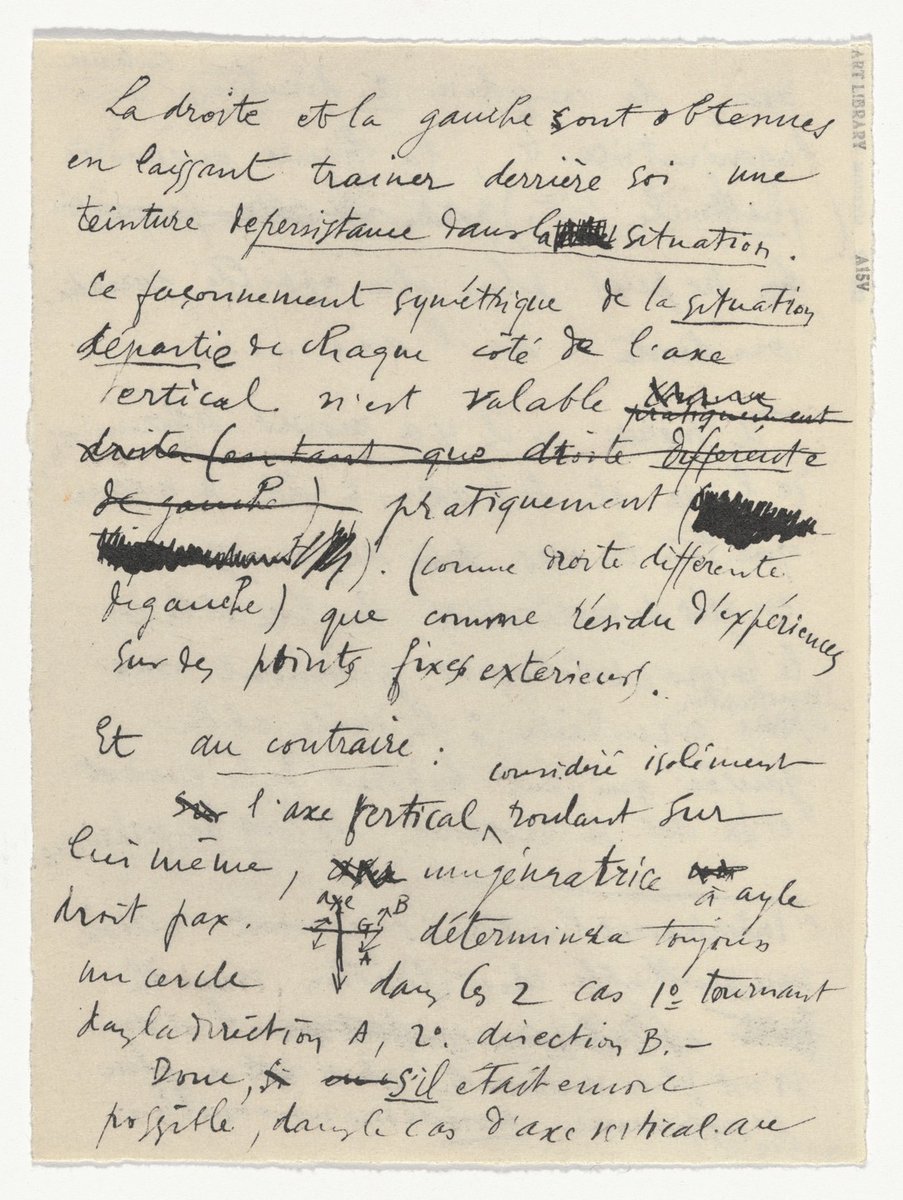 La droite et la gauche sont obtenues
en laissant trainer derrière soi une
teinture de persistance dans la situation.
Ce façonnement symétrique de la situation
départie de chaque côté de l'axe
vertical n'est valable
pratiquement
droite (en tant que droite différente
de gauche) pratiquement (
). (comme droite différente
de gauche) que comme résidu d'expériences
sur des points fixes extérieurs.
Et au contraire :
considéré isolément
sur l'axe vertical, roulant sur
lui même, une génératrice à angle
droit par ex.
axe
B
G
A
déterminera toujours
un cercle dans les 2 cas 1º tournant
dans la direction A, 2º. direction B. —
Donc, si s'il était encore
possible, dans le cas d'axe vertical au
ART LIBRARY
A15V